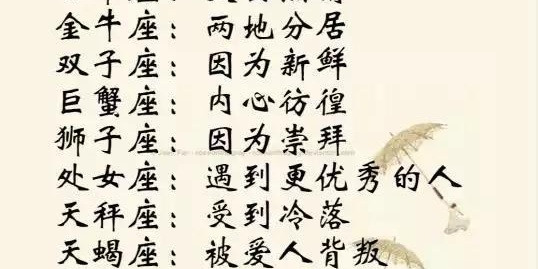 金牛座：两地分居
双子座：因为新鲜
巨蟹座：内心彷徨
狮子座：因为崇拜
处女座：遇到更优秀的人
天秤座：受到冷落
天蝎座：被爱人背叛